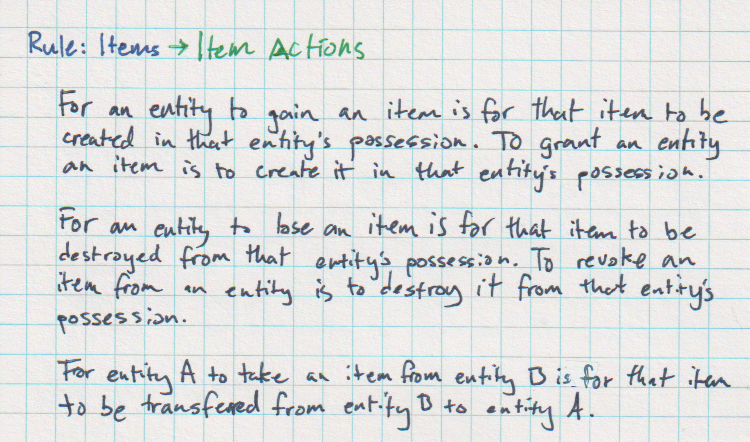 Rule: Items → Item Actions
For an entity to gain an item is for that item to be
created in that entity's possession. To grant an entity
an item is to create it in that entity's possession.
For an entity to lose an item is for that item to be
destroyed from that entity's possession. To revoke an
item from an entity is to destroy it from that entity's
possession.
For entity A to take an item from entity B is for that item
to be transferred from entity B to entity A.